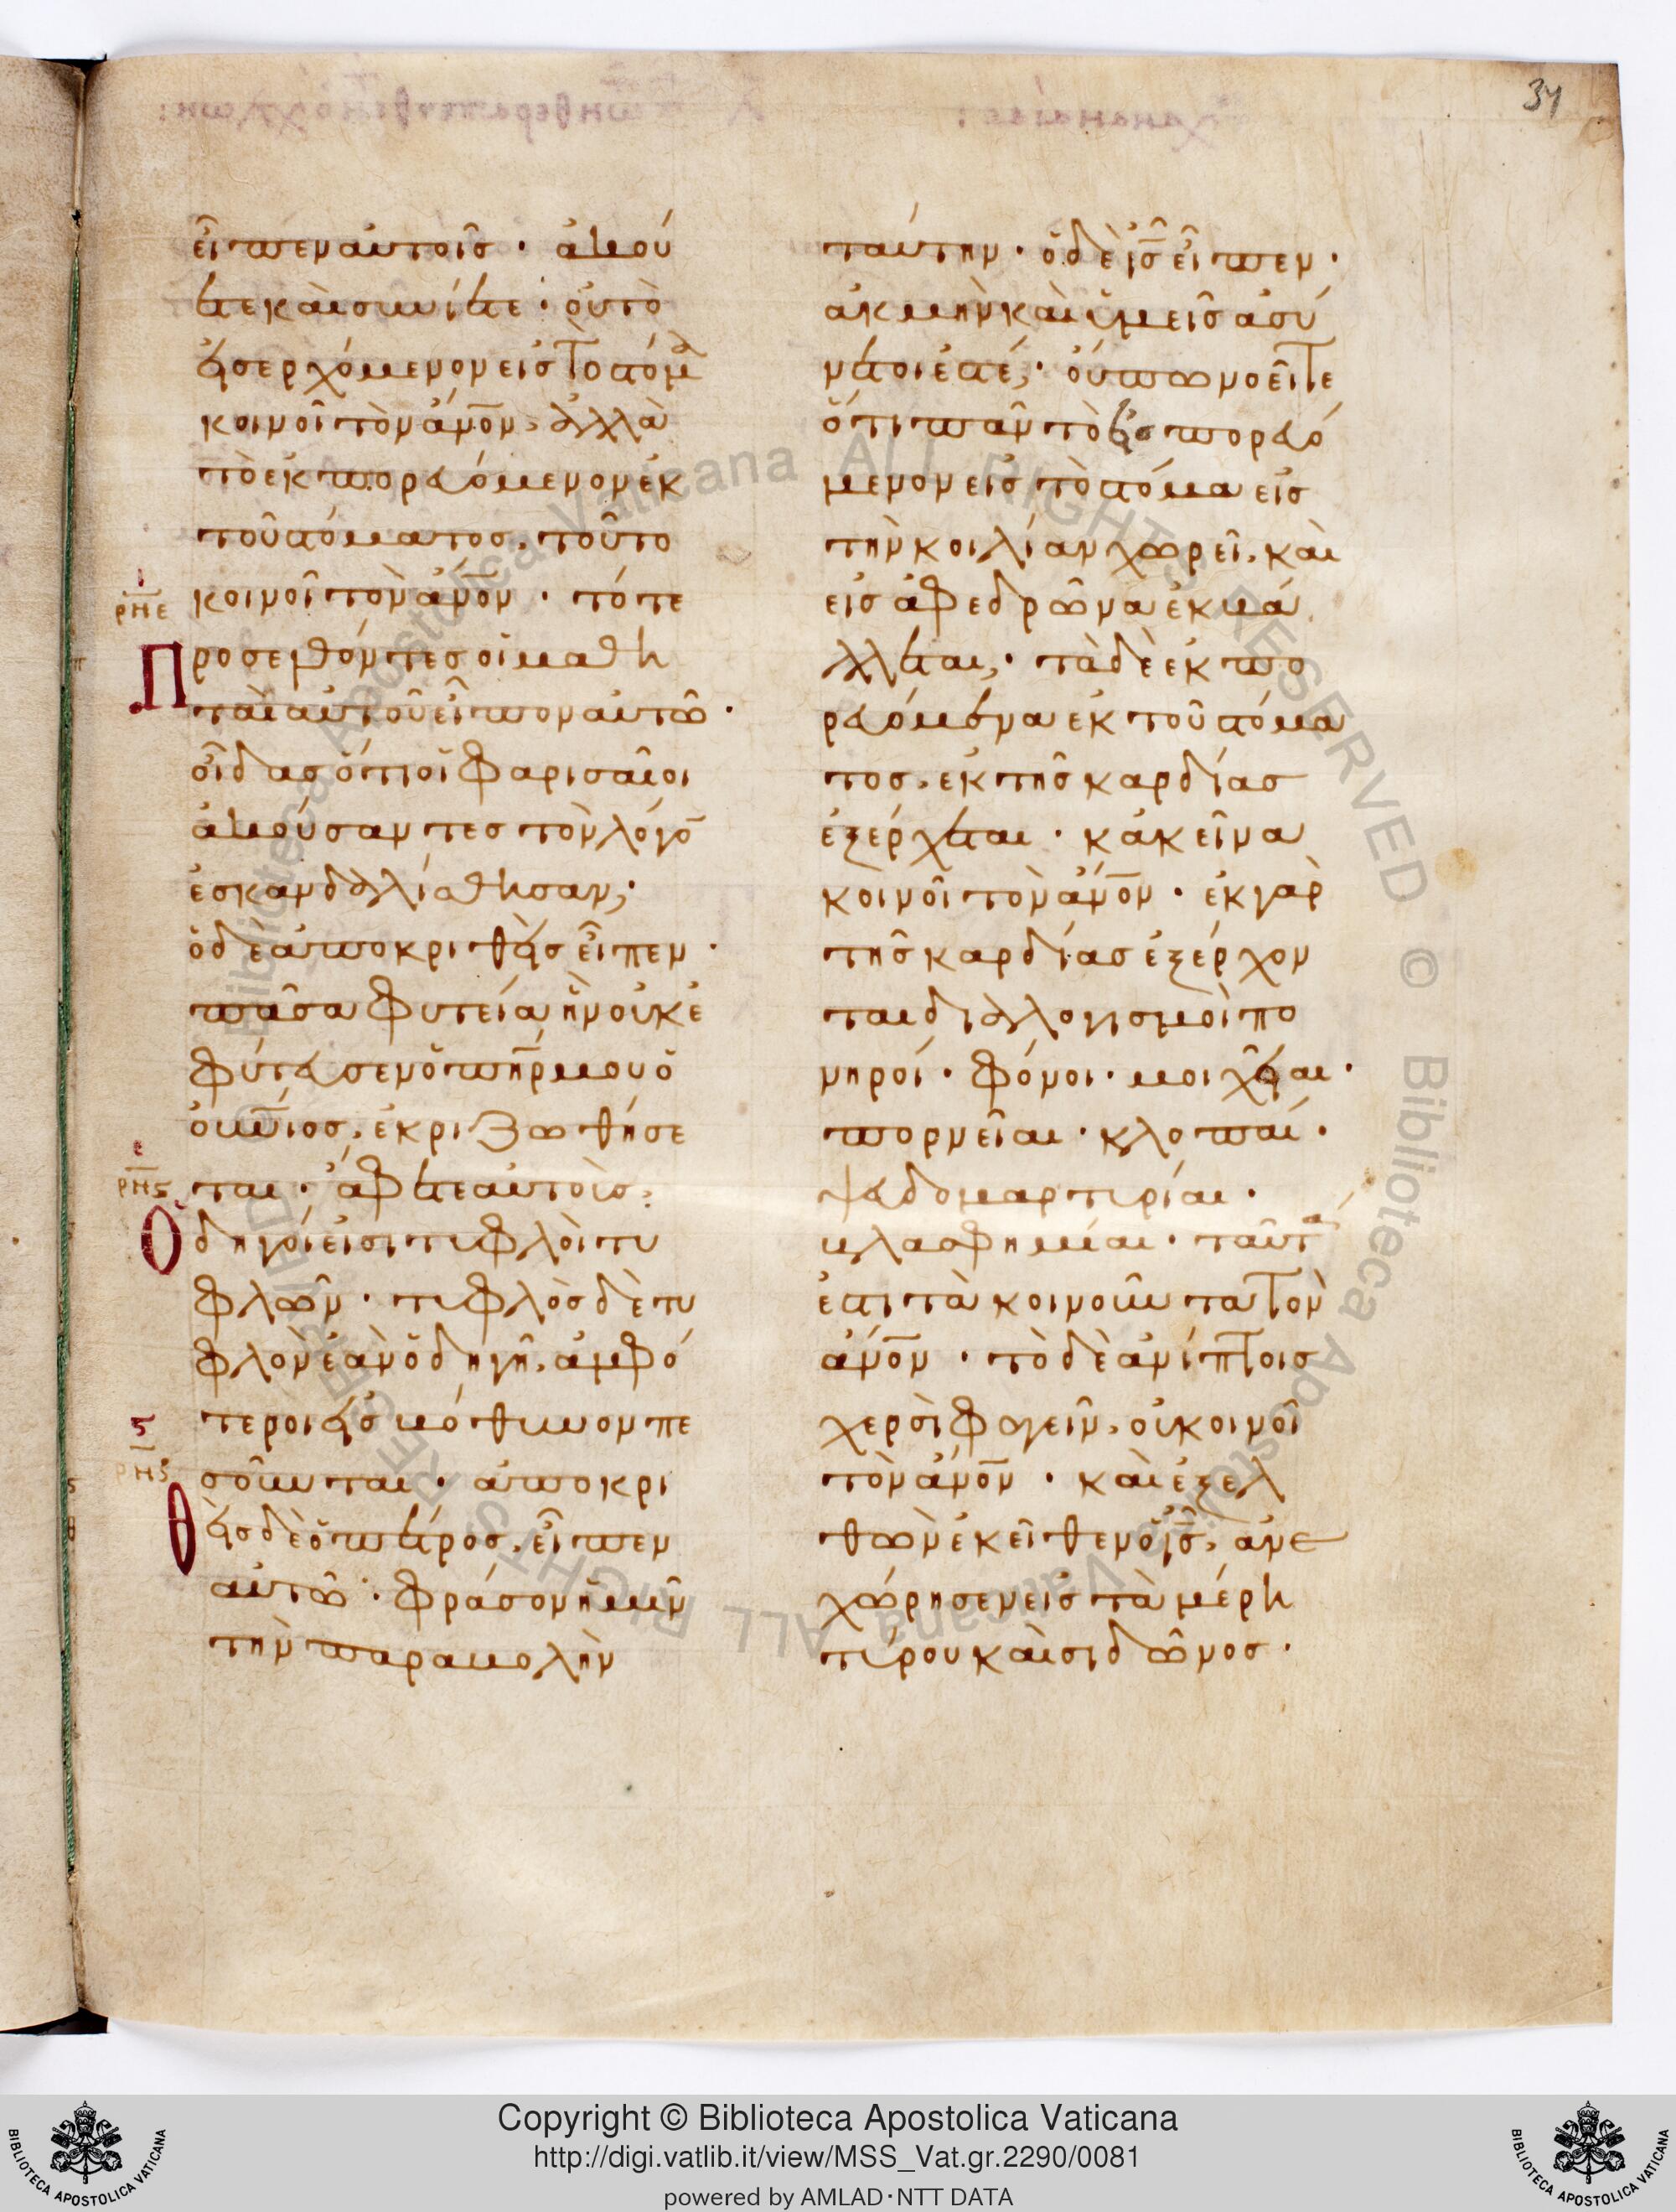 34
εἶπεν αὐτοῖς · ἀκού
ετε καὶ συνίετε · οὐ τὸ
εἰσερχόμενον εἰς τὸ στόμα
κοινοῖ τὸν ἄνον, ἀλλὰ
τὸ ἐκπορευόμενον ἐκ
τοῦ στόματος, τοῦτο
ρμε κοινοῖ τὸν ἄνον · τότε
Προσελθόντες οἱ μαθη
ταὶ αὐτοῦ εἶπον αὐτῶ ·
οἶδας ὅτι οἱ φαρισαῖοι
ἀκούσαντες τὸν λόγον
ἐσκανδαλίσθησαν;
ὁ δὲ ἀποκριθεὶς εἶπεν ·
πᾶσα φυτεία ἣν οὐκ ἐ
φύτευσεν ὁ πηρ μου ὁ
οὐνιος, ἐκριζωθήσε
ρμς ται · ἄφετε αὐτοὺς ·
Ὁδηγοί εἰσι τυφλοὶ τυ
φλῶν · τυφλὸς δὲ τυ
φλὸν ἐὰν ὁδηγῆ, ἀμφό
τεροι εἰς βόθυνον πε
ρμζ σοῦνται · ἀποκρι
θεὶς δὲ ὁ πέτρος, εἶπεν
αὐτῶ · φράσον ἡμῖν
τὴν παραβολὴν
ταύτην · ὁ δὲ ις εἶπεν ·
ἀκμὴν καὶ ὑμεῖς ἀσύ
νετοί ἐστέ; οὔπω νοεῖτε
ὅτι πᾶν τὸ εἰσπορευό
μενον εἰς τὸ στόμα εἰς
τὴν κοιλίαν χωρεῖ, καὶ
εἰς ἀφεδρῶνα ἐκβά
λλεται; τὰ δὲ ἐκπο
ρευόμενα ἐκ τοῦ στόμα
τος, ἐκ τῆς καρδίας
ἐξέρχεται · κἀκεῖνα
κοινοῖ τὸν ἄνον · ἐκ γὰρ
τῆς καρδίας ἐξέρχον
ται διαλογισμοὶ πο
νηροί · φόνοι · μοιχεῖαι ·
πορνεῖαι · κλοπαί ·
ψευδομαρτυρίαι ·
βλασφημίαι · ταῦτα
ἐστι τὰ κοινοῦντα τὸν
ἄνον · τὸ δὲ ἀνίπτοις
χερσὶ φαγεῖν, οὐ κοινοῖ
τὸν ἄνον · καὶ ἐξελ
θὼν ἐκεῖθεν ὁ ις, ἀνε
χώρησεν εἰς τὰ μέρη
τύρου καὶ σιδῶνος ·
Copyright © Biblioteca Apostolica Vaticana
http://digi.vatlib.it/view/MSS_Vat.gr.2290/0081
powered by AMLAD·NTT DATA
BIBLIOTECA APOSTOLICA VATICANA
BIBLIOTECA APOSTOLICA VATICANA
© Biblioteca Apostolica Vaticana ALL RIGHTS RESERVED